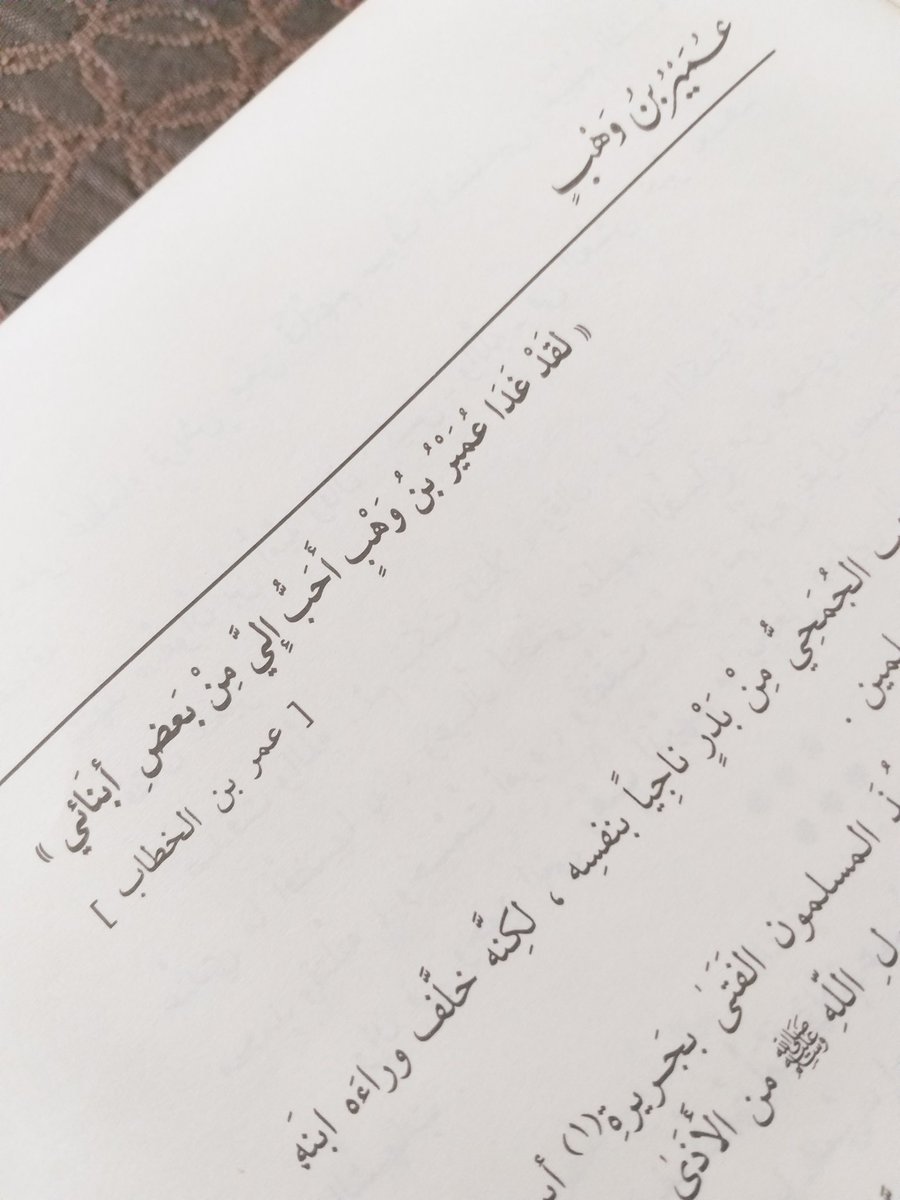 عُمَيْرُ بْنُ وَهْبٍ
« لَقَدْ غَدَا عُمَيْرُ بْنُ وَهْبٍ أَحَبَّ إِلَيَّ مِنْ بَعْضِ أبْنَائي »
[ عمر بن الخطاب ]
الجُمَحِيُّ مِنْ بَدْرٍ ناجِياً بنفسِه ، لكِنَّه خلَّف وراءَه ابنَه
المسلمون الفَتَى بجَريرةِ (١)
اللّهِ ﷺ من الأَذَى